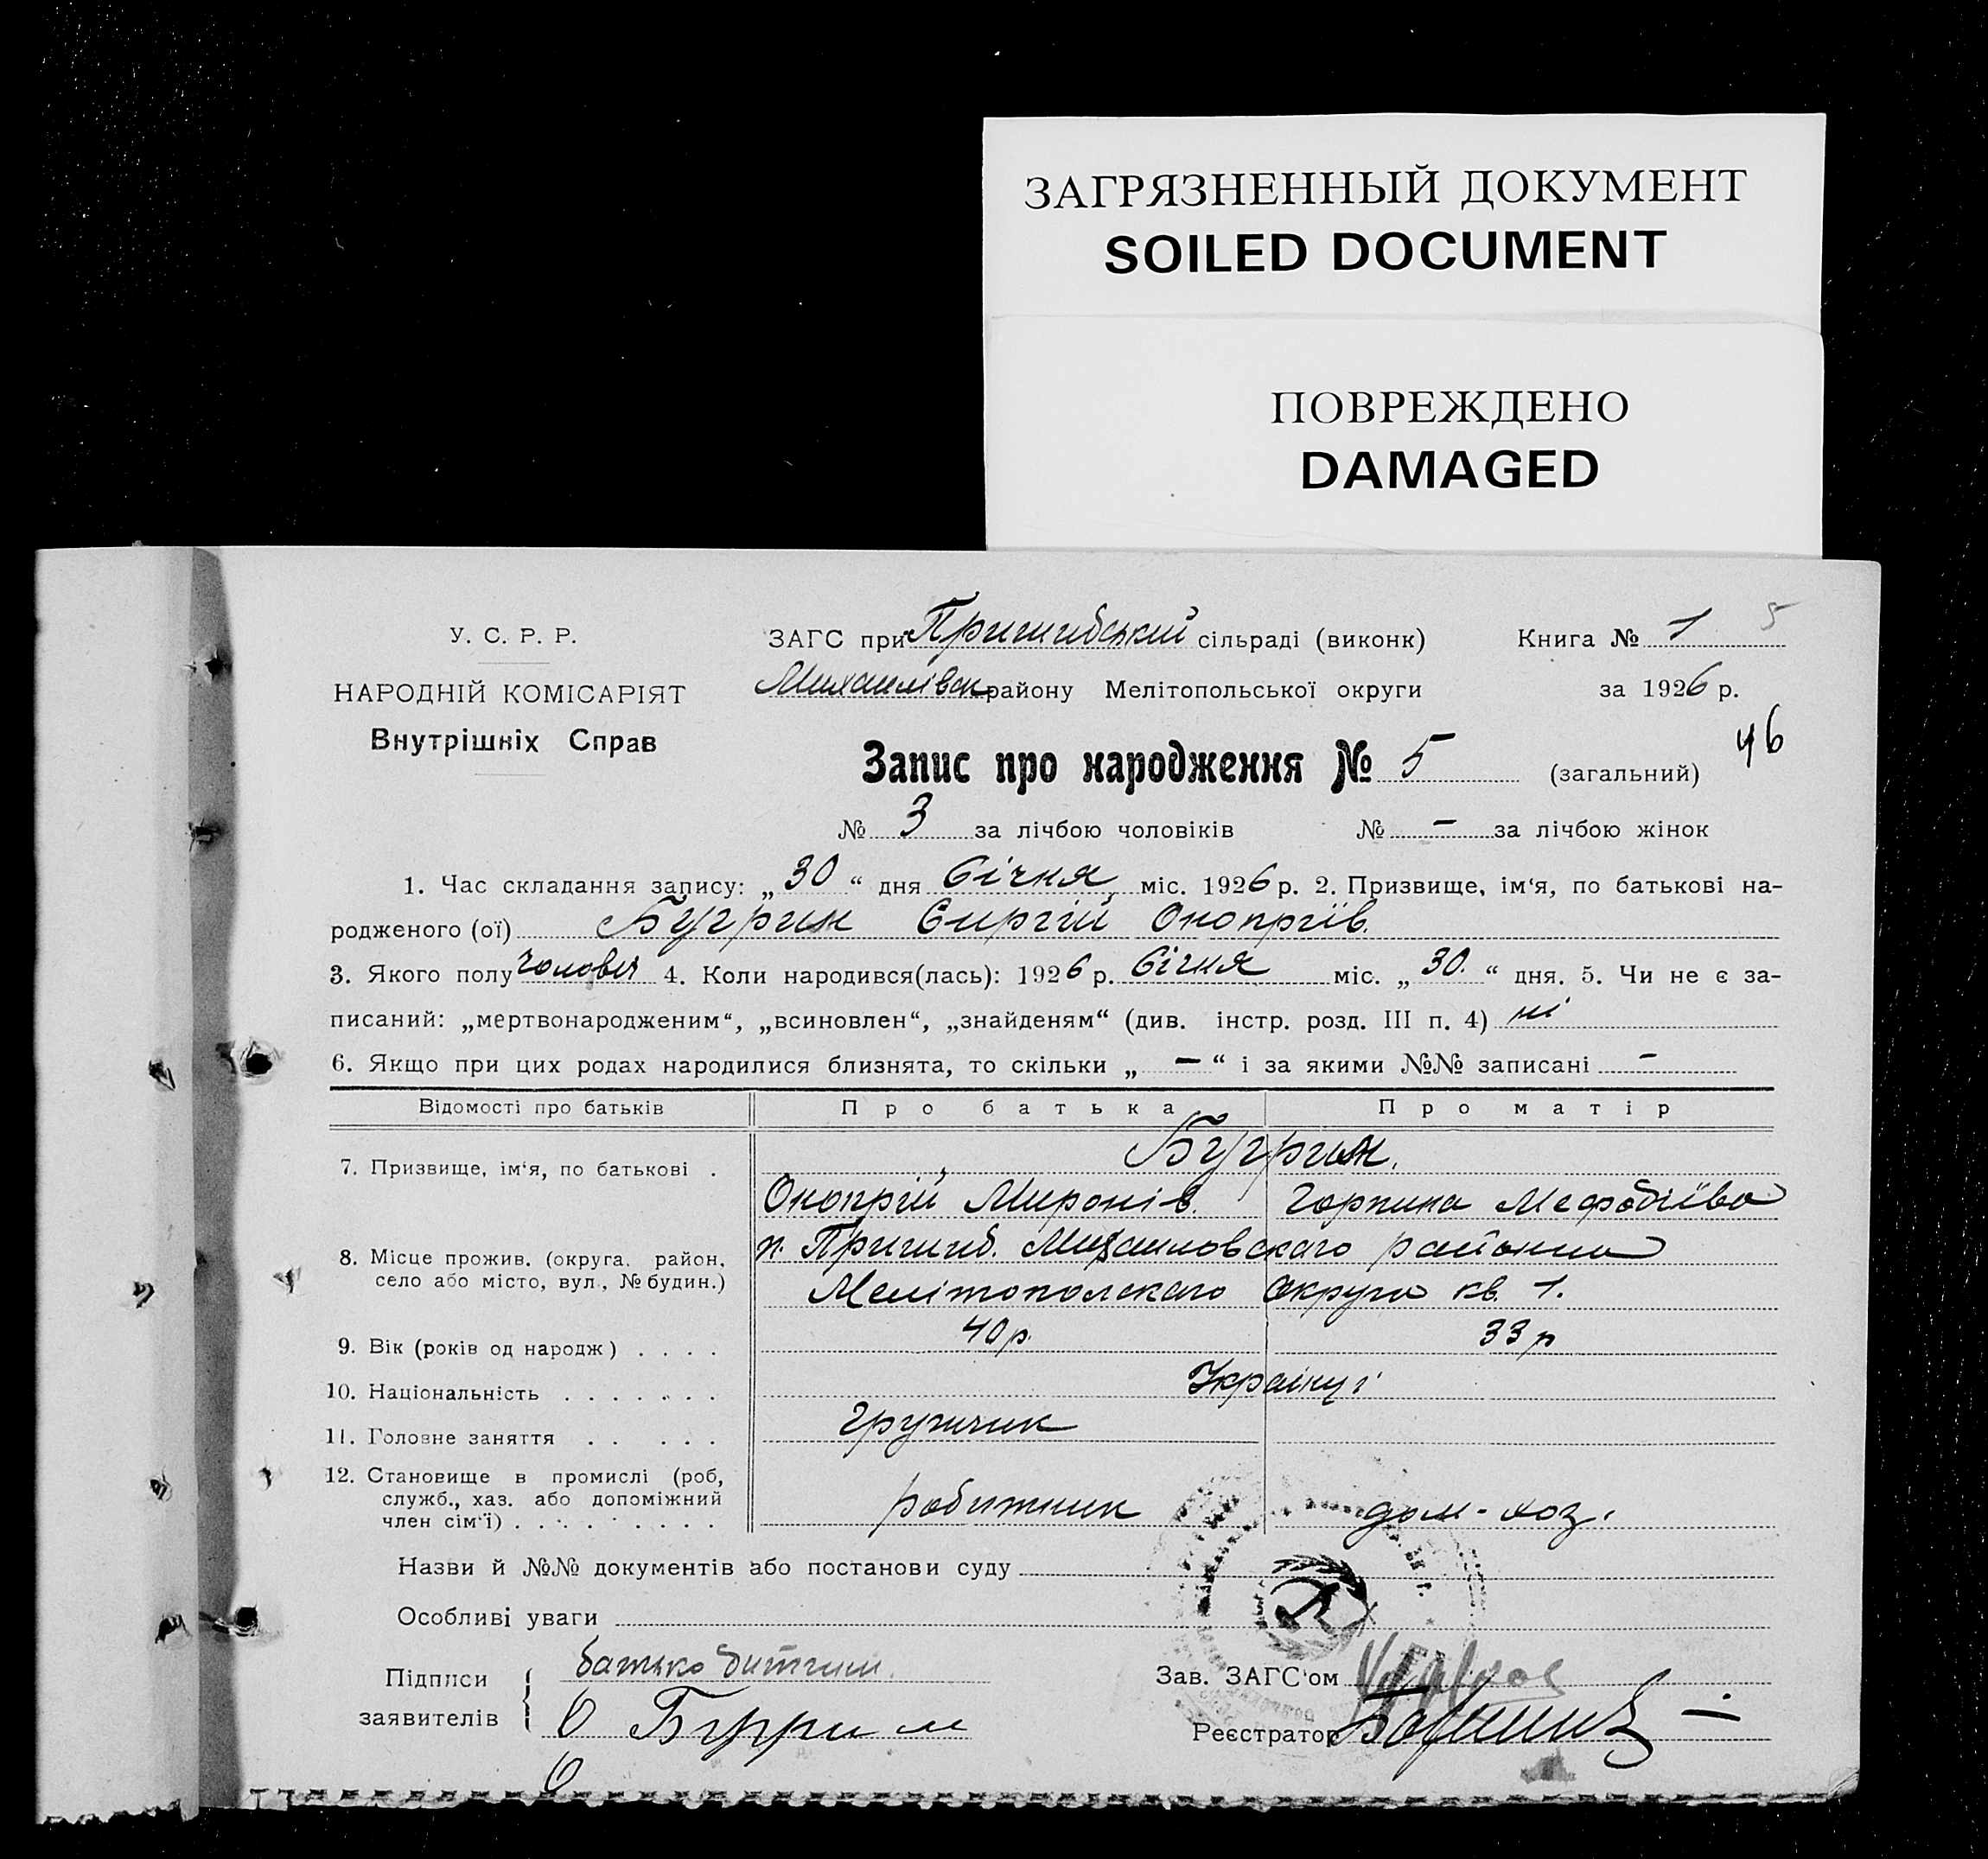 ЗАГРЯЗНЕННЫЙ ДОКУМЕНТ
SOILED DOCUMENT
ПОВРЕЖДЕНО
DAMAGED
У. С. Р. Р.
НАРОДНІЙ КОМІСАРІЯТ
Внутрішніх Справ
ЗАГС при Пришибський сільраді (виконк) Книга № 1 5
Михайлівськ району Мелітопольської округи за 1926 р.
46
Запис про народження № 5 (загальний)
№ 3 за лічбою чоловіків № — за лічбою жінок
1. Час складання запису: „30“ дня Січня міс. 1926 р. 2. Призвище, ім‘я, по батькові на-
родженого (ої) Бугрин Сиргій Онопріїв.
3. Якого полу чолові 4. Коли народився(лась): 1926 р. Січня міс. „30.“ дня. 5. Чи не є за-
писаний: „мертвонародженим“, „всиновлен“, „знайденям“ (див. інстр. розд. III п. 4) ні
6. Якщо при цих родах народилися близнята, то скільки „—“ і за якими №№ записані —
Відомості про батьків Про батька Про матір
7. Призвище, ім‘я, по батькові . Бугрин.
Онопрій Миронів. Горпина Мефодіїва
8. Місце прожив. (округа, район, село або місто, вул., № будин.) п. Пришиб. Михаиловскаго района
Мелітополскаго округа кв. 1.
9. Вік (років од народж) . . . . 40 р. 33 р
10. Національність . . . . . . . Українці
11. Головне заняття . . . . . грущик
12. Становище в промислі (роб,
служб., хаз. або допоміжний
член сім‘ї) . . . . . . . . робитник дом-хоз.
Назви й №№ документів або постанови суду
Особливі уваги
Підписи заявителів батько дитини.
О Бугрин
Зав. ЗАГС‘ом
Реєстратор